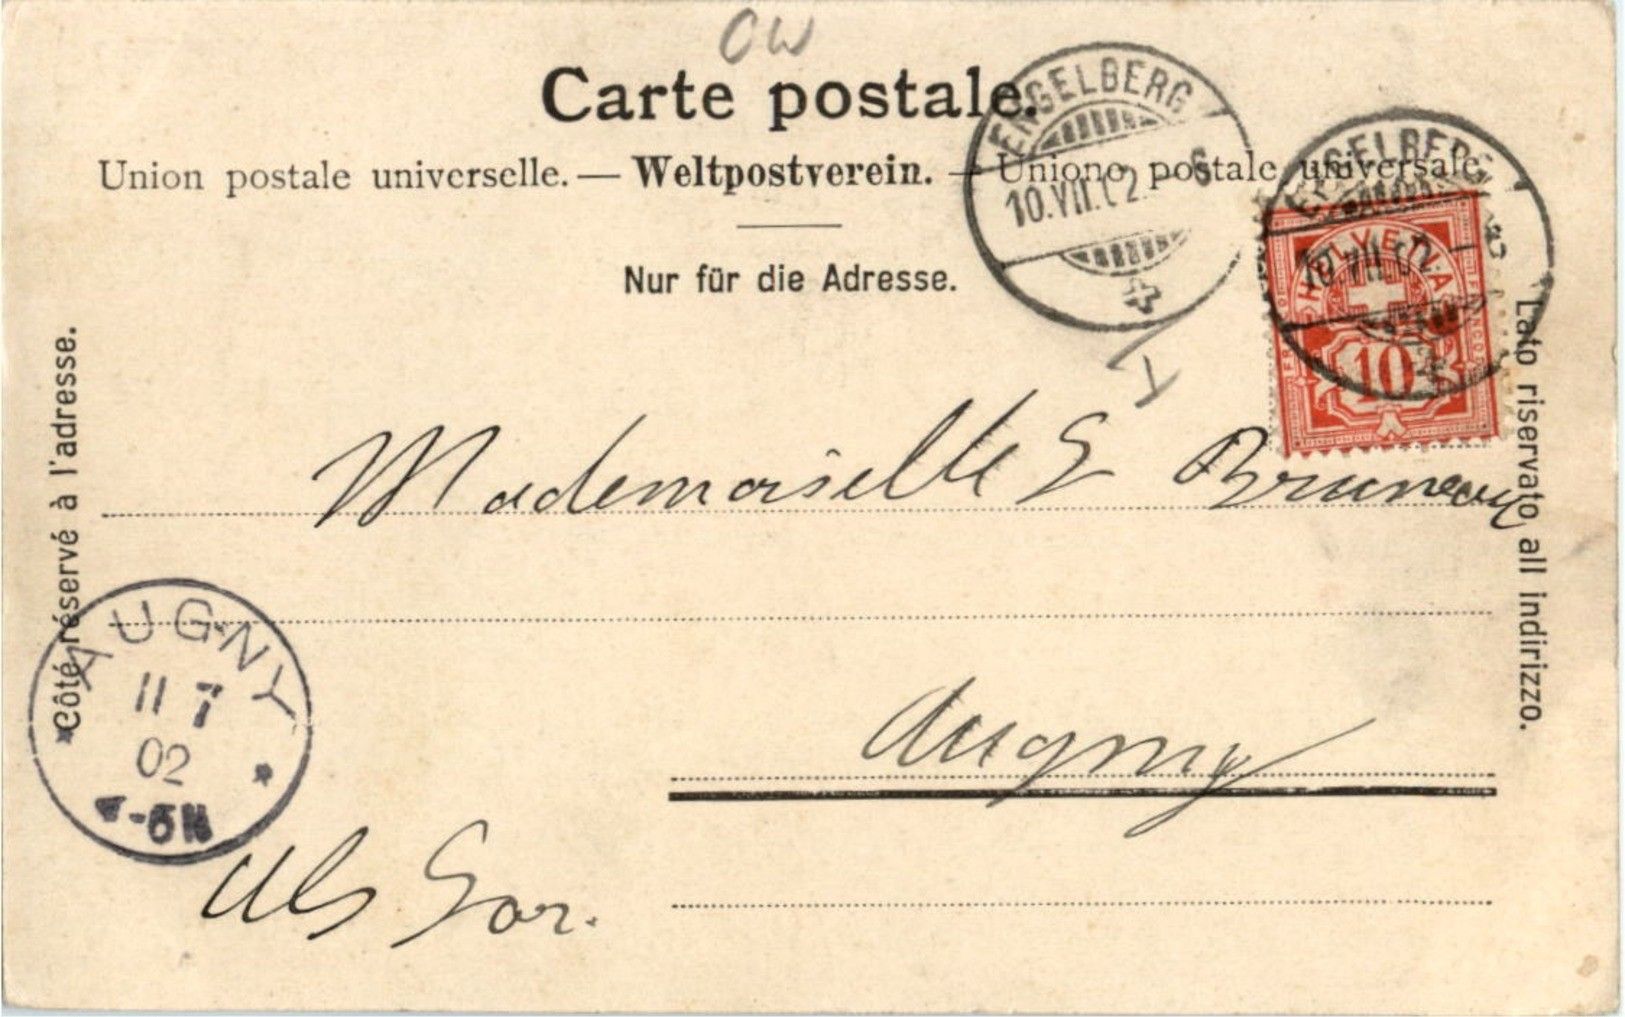 OW
Carte postale.
Union postale universelle. — Weltpostverein. — Unione postale universale.
Nur für die Adresse.
ENGELBERG
10.VII.02. 6
ENGELBERG
10.VII.02.
HELVETIA
FRANCO
10
Côté réservé à l'adresse.
Lato riservato all indirizzo.
Mademoiselle
Augny
AUGNY
11 7
02
Als Lor.